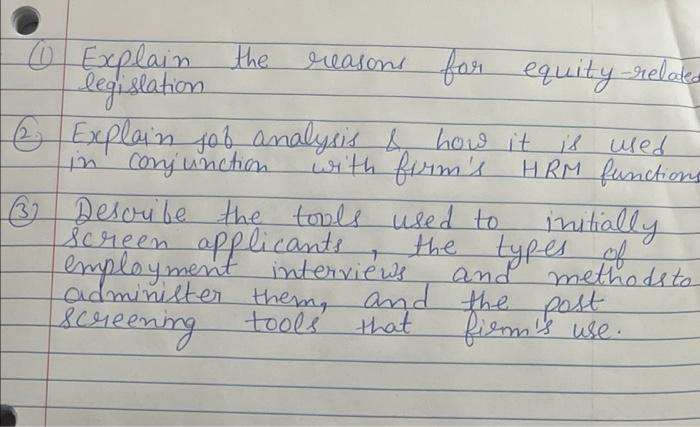 ① Explain the reasons for equity-related
legislation
② Explain job analysis & how it is used
in conjunction with firm's HRM functions
③ Describe the tools used to initially
screen applicants, the types of
employment interviews and methods to
administer them, and the post
screening tools that firm's use.